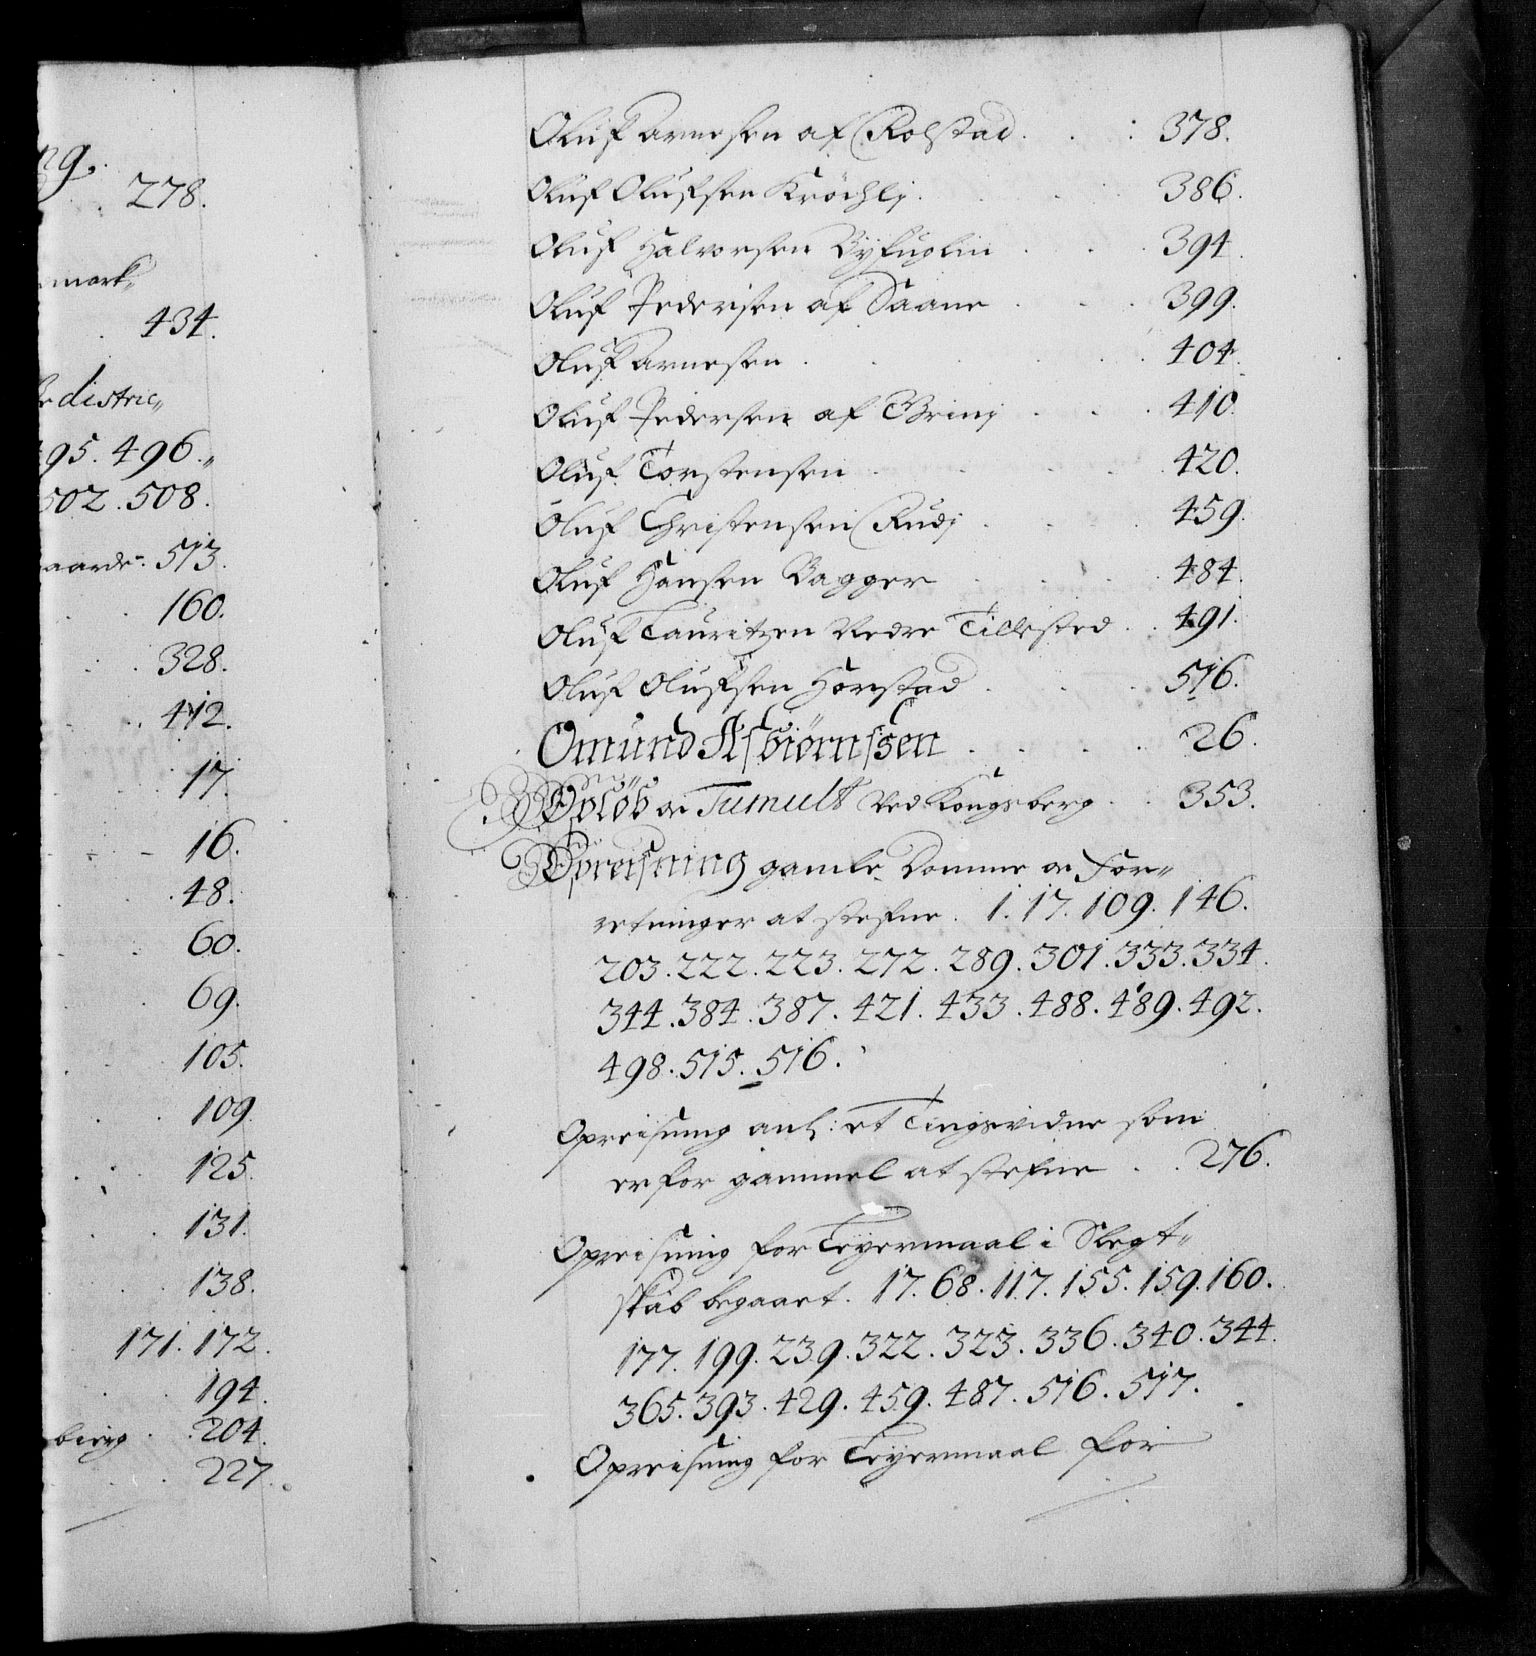 ng.
278.
mark,,
434.
districₒ,,
495. 496.,,
502. 508.
gaarde. 513.
160.
328.
412.
17.
16.
48.
60.
69.
105.
109.
125.
131.
138.
171. 172.
194.
bierg 204.
227.
Oluf Arnesen af Rolstad 378.
Oluf Olufsen Kröchlj 386.
Oluf Halvorsen Byfuglin 394.
Oluf Pedersen af Saane 399.
Oluf Arnesen 404.
Oluf Pedersen af Grinj 410.
Oluf Torstensen 420.
Oluf Christensen Rudj 459.
Oluf Hansen Bagger 484.
Oluf Lauritzen Nedre Tillested 491.
Oluf Olufsen Horstad 516.
Omund Asbiørnssen 26.
Opløb og Tumult ved Kongsberg 353.
Opreisning gamle Domme og For,,
retninger at stefne. 1. 17. 109. 146.
203. 222. 223. 272. 289. 301. 333. 334.
344. 384. 387. 421. 433. 488. 489. 492.
498. 515. 516.
Opreisning anl: et Tingsvidne som
er for gammel at stefne 276.
Opreisning for Leyermaal i Slegt,,
skab begaaet. 17. 68. 117. 155. 159. 160.
177. 199. 239. 322. 323. 336. 340. 344.
365. 393. 429. 459. 487. 516. 517.
Opreisning for Leyermaal for